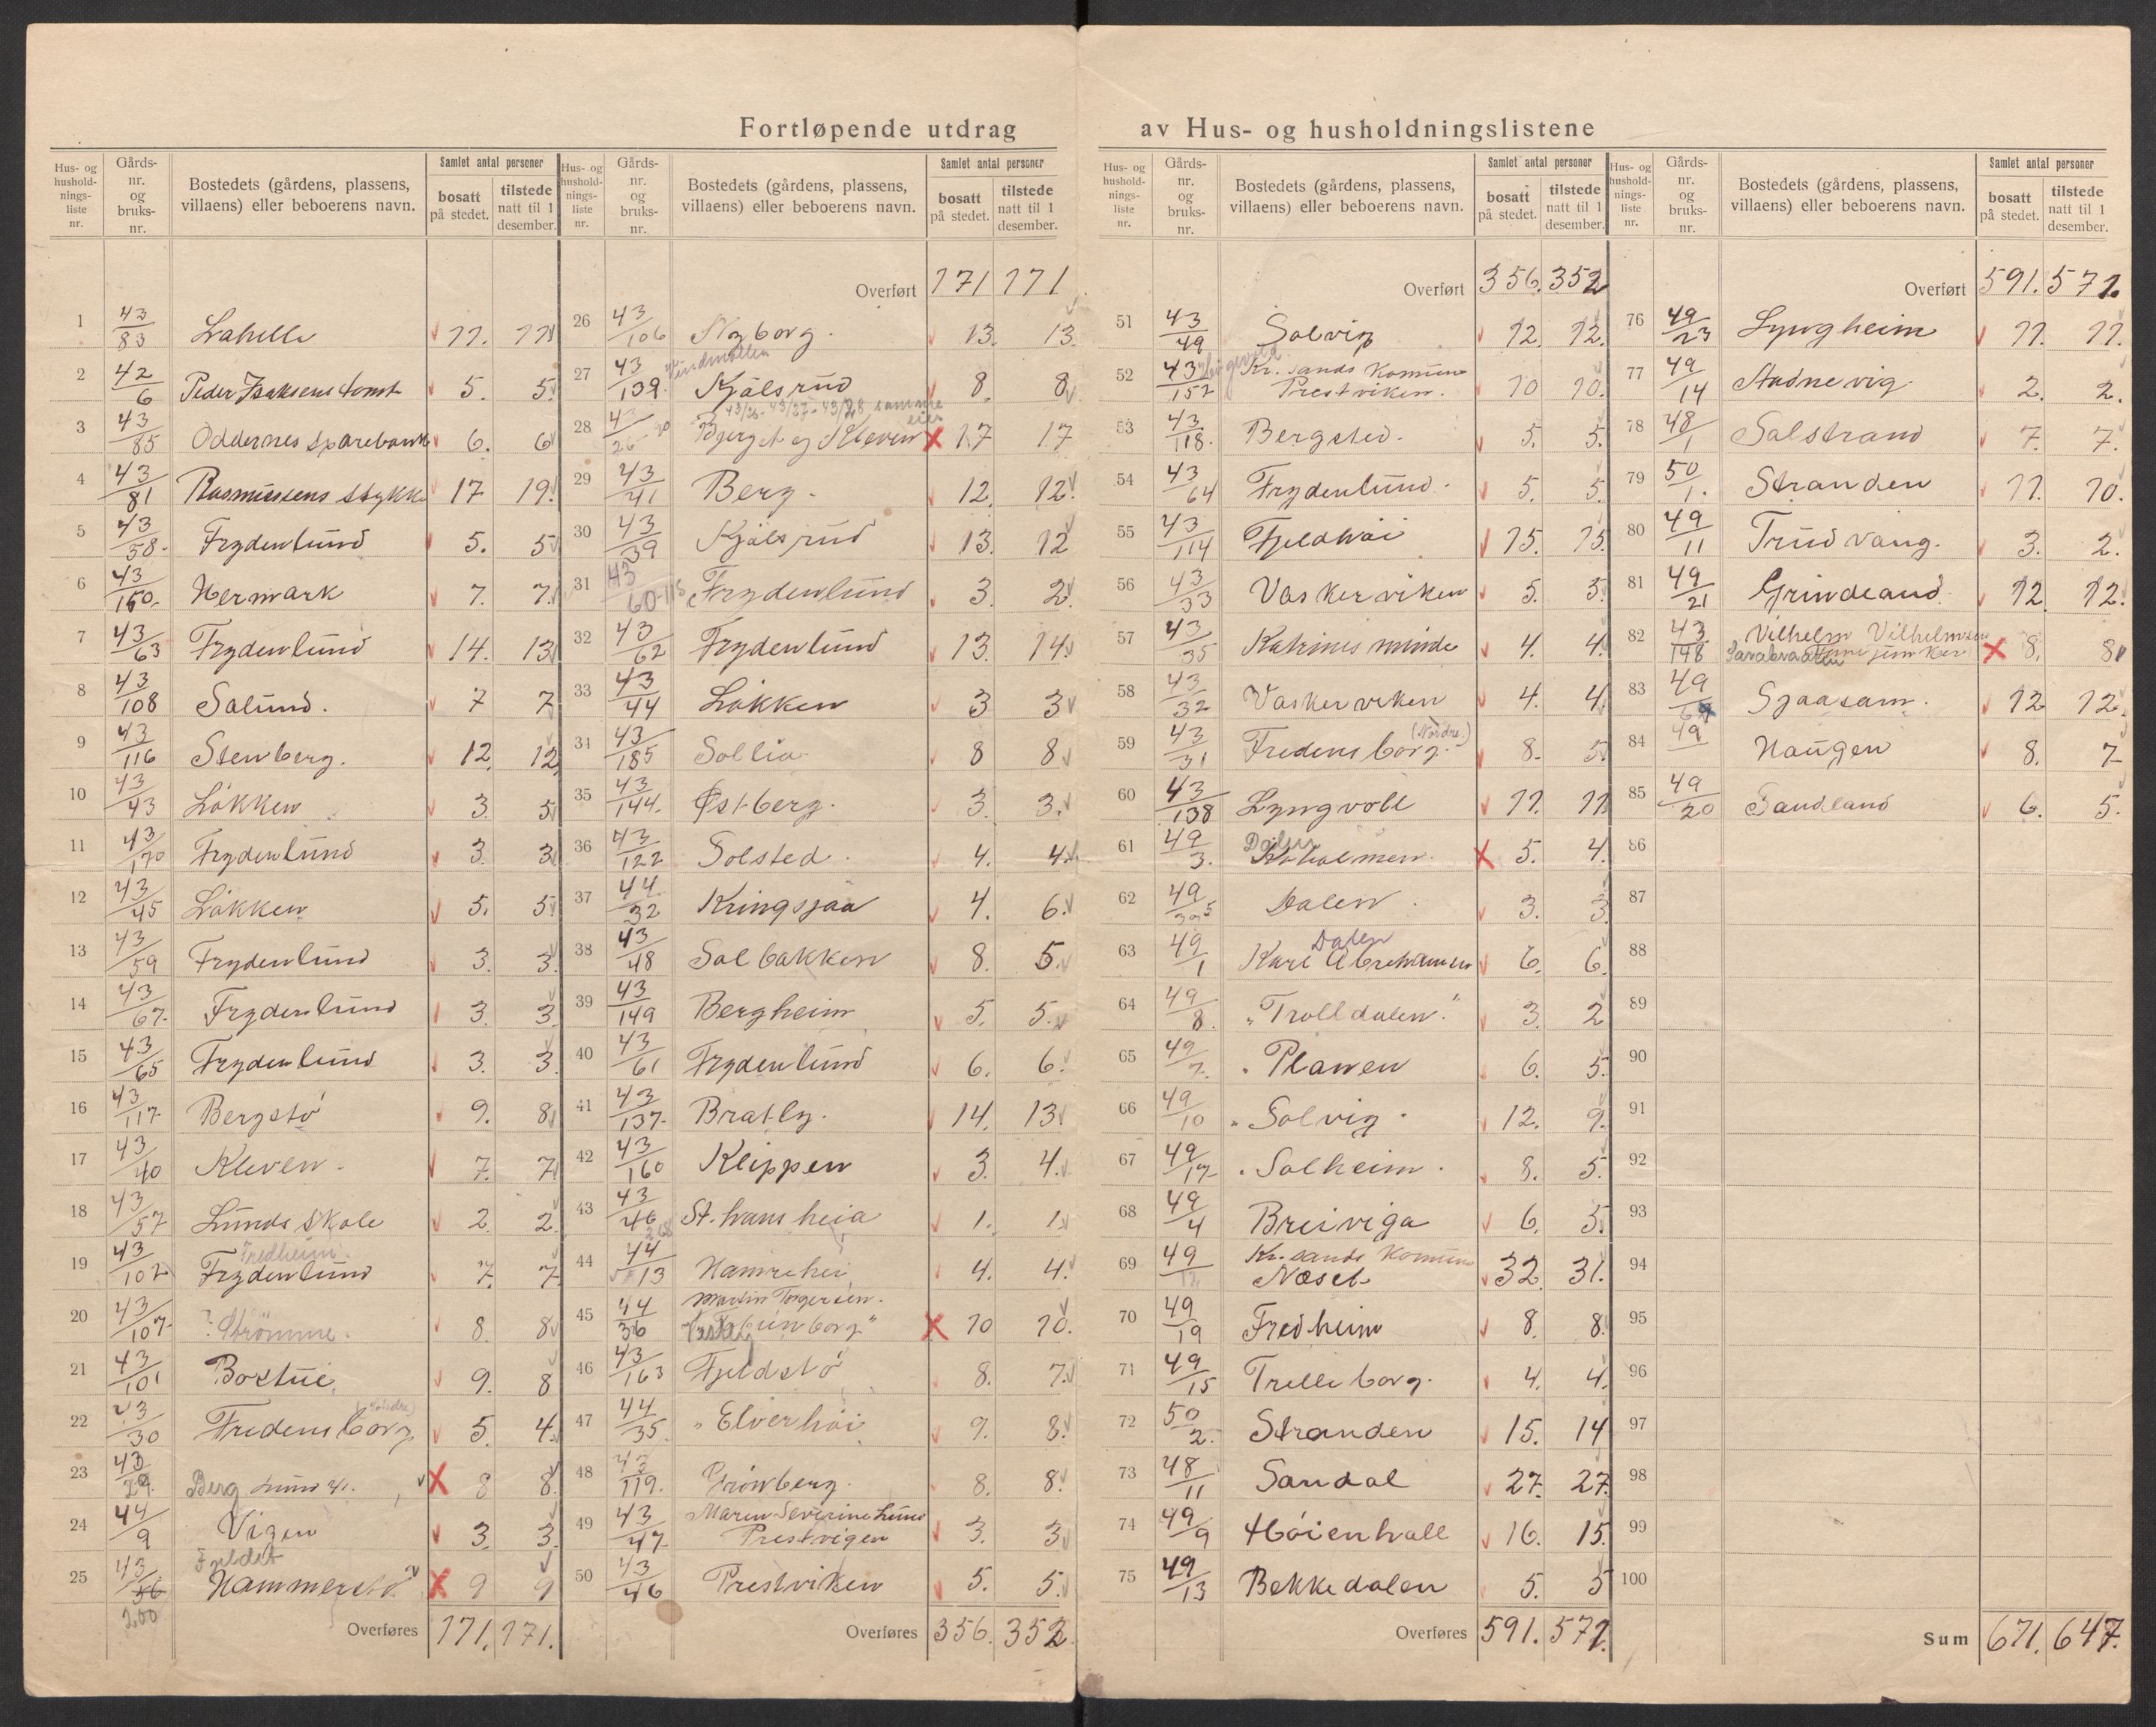 Fortløpende utdrag av Hus- og husholdningslistene
Hus- og husholdningsliste nr. | Gårds-nr. og bruks-nr. | Bostedets (gårdens, plassens, villaens) eller beboerens navn. | Samlet antal personer | bosatt på stedet. | tilstede natt til 1 desember.
1 43/83 11. 11
2 42/6 Peder Isaksens tomt 5. 5.
3 43/85 Oddernes sparebank 6. 6
4 43/81 Rasmussens stykke 17 19.
5 43/58. Frydenlund 5. 5
6 43/150. Hermark 7. 7.
7 43/63 Frydenlund 14. 13
8 43/108 Solund. 7 7
9 43/116 Stenberg. 12. 12
10 43/43 Løkken 3. 5
11 43/170 Frydenlund 3. 3
12 43/45 Løkken 5. 5
13 43/59 Frydenlund 3. 3.
14 43/67. Frydenlund 3. 3.
15 43/65 Frydenlund 3. 3.
16 43/117. Bergstø 9. 8
17 43/40 Kleven. 7. 7
18 43/57 Lunds skole 2. 2.
Fredheim.
19 43/102 Frydenlund 7. 7
20 43/107. ? Strömme. 8. 8
21 43/101 Bostue 9. 8
(Søndre)
22 43/30 Fredensborg 5. 4.
23 43/29. Berg Lund 8 8.
24 44/9 Vigen 3. 3.
Fjeldet
25 43/56 Hammerstø 9 9
200
Overføres 171. 171.
Overført 171 171
26 43/106 Nyborg. 13. 13.
Vindmøllen
27 43/139. Kjølsrud 8. 8.
43/26 - 43/27 - 43/28 samme eier
28 43/26 Bjerget og Kleven 17 17
29 43/41 Berg. 12. 12.
30 43/39 Kjølsrud 13. 12
31 43/60-115 Frydenlund 3. 2.
32 43/62 Frydenlund 13. 14.
33 43/44 Løkken 3 3
31 43/185 Sollia 8 8
35 43/144. Østberg. 3. 3.
36 43/122 Solsted. 4. 4.
37 44/32 Kringsjaa 4. 6.
38 43/48 Solbakken 8. 5.
39 43/149 Bergheim 5. 5.
40 43/61 Frydenlund 6. 6.
41 43/137. Bratly. 14. 13
42 43/160 Klippen 3. 4.
43 43/46 St. hans heia 1. 1.
268
44 44/13 Hamrehei 4. 4.
Martin Torgersen.
45 44/36 10 10.
46 43/163 Fjeldstø 8. 7.
47 44/35. "Elverhøi 9. 8.
48 43/119. Grønberg. 8. 8.
Maren Severine Lund
49 43/47. Prestvigen 3. 3
50 43/46 Prestviken 5. 5.
Overføres 356. 352.
Overført 356. 352
51 43/49 Solvig 12. 12.
Kr. sands Komune
52 43/152 Prestviken. 10 10.
53 43/118. Bergsted. 5. 5.
54 43/64 Frydenlund. 5. 5.
55 43/114 Fjeldhøi 15. 15.
56 43/33 Vaskerviken 5. 5.
57 43/35 Katrines minde 4. 4.
58 43/32 Vaskerviken 4. 4.
(Nordre.)
59 43/31 Fredensborg. 8. 5.
60 43/138 Lyngvoll 11. 11
Dalen
61 49/3. Koholmen. 5. 4.
62 49/395 Dalen 3. 3.
Dalen
63 49/1 Kari Abrahamsen 6. 6.
64 49/8. "Trolldalen." 3. 2
65 49/7. Planen 6. 5.
66 49/10 Solvig. 12. 9.
67 49/17. Solheim. 8. 5.
68 49/4 Breiviga 6. 5.
Kr. sands Komune
69 49/12 Næset 32. 31.
70 49/19 Fredheim 8. 8.
71 49/15 Trelleborg. 4. 4.
72 50/2. Stranden 15. 14
73 48/11 Sandal 27. 27.
74 49/9 Høienhall 16. 15.
75 49/13 Bekkedalen 5. 5
Overføres 591. 571.
Overført 591. 571.
76 49/23 Lyngheim 11. 11.
77 49/14 Stadnevig 2. 2.
78 48/1 Solstrand 7. 7.
79 50/1. Stranden 11. 10.
80 49/11 Trudvang. 3. 2.
81 49/21 12. 12.
Vilhelm Vilhelmsen
82 43/148 8. 8
83 49/6 Sjaasam. 12 12.
84 49 Haugen 8. 7
85 49/20 Sandland 6. 5.
86
87
88
89
90
91
92
93
94
95
96
97
98
99
100
Sum 671. 647.